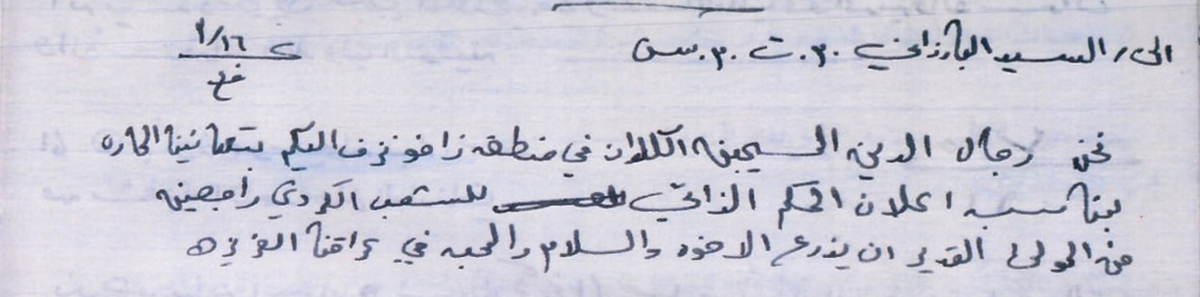 الى/ السيد البارزاني م.ت م.س
ع ١٦/٣
نحن رجال الدين المسيحيين الكلدان في منطقة زاخو نزف اليكم بتهانينا الحاره
بمناسبة اعلان الحكم الذاتي للشعب الكردي راجين
من المولى القدير ان يزرع الاخوه والسلام والمحبه في عراقنا العزيز